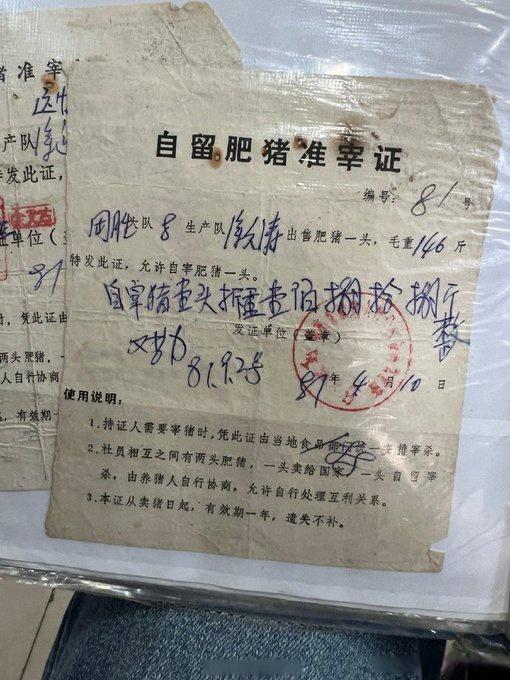 猪准宰
产队
特发此证，
单位（
81
时，凭此证由
两头肥猪，
人自行协商，
有效期一
自留肥猪准宰证
编号：81号
队 8 生产队 出售肥猪一头，毛重146斤
特发此证，允许自宰肥猪一头。
自宰猪壹头折壹佰捌拾捌斤
发证单位（盖章）
81.9.28
81年4月10日
使用说明：
1.持证人需要宰猪时，凭此证由当地食品 安排宰杀。
2.社员相互之间有两头肥猪，一头卖给国家，一头自留宰
杀，由养猪人自行协商，允许自行处理互利关系。
3.本证从卖猪日起，有效期一年，遗失不补。